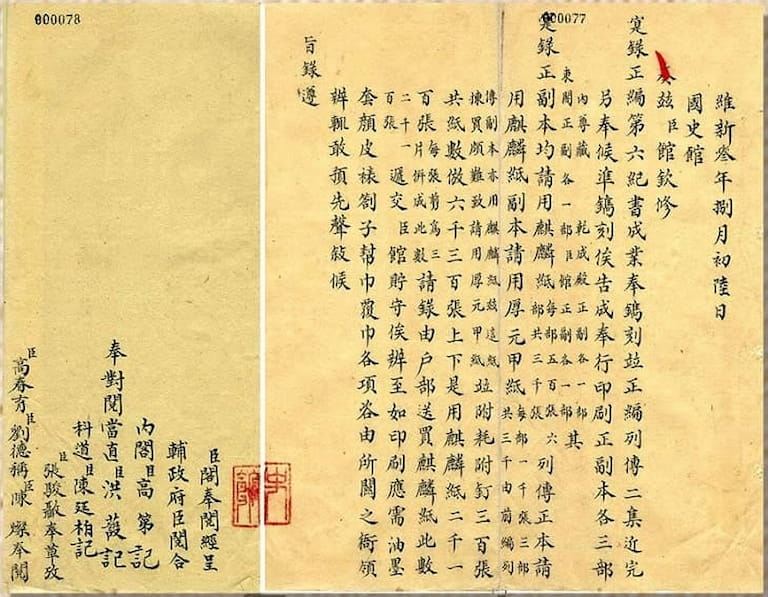 000077
維新叁年捌月初陸日
國史館
奏茲臣館欽修
寔錄正編第六紀書成業奉鐫刻竝正編列傳二集近完
另奉候準鐫刻俟告成奉行印刷正副本各三部
內尊藏 乾成殿正副各一部
東閣正副各一部臣館正副各一部 其
寔錄正副本均請用麒麟紙每部五百張六部共三千張列傳正本請
用麒麟紙副本請用厚元甲紙每部一千張三部共三千由前編列
傳副本亦用麒麟紙茲這紙揀買頗難致請用厚元甲紙竝附耗附釘三百張
共紙數倣六千三百張上下是用麒麟紙二千一
百張每張剪爲三片併成此數請錄由户部送買麒麟紙此數
二千一百張遞交臣館貯守俟辦至如印刷應需油墨
套顏皮裱劄子幫巾覆巾各項咨由所關之衙領
辦輒敢預先聲敍候
旨錄遵
史館
000078
臣閣奉閱經呈
輔政府臣閱合
內閣臣高第記
奉對閱當直臣洪記
科道臣陳廷柏記
臣張駿奉草攷
臣高春育臣劉德稱臣陳燦奉閱